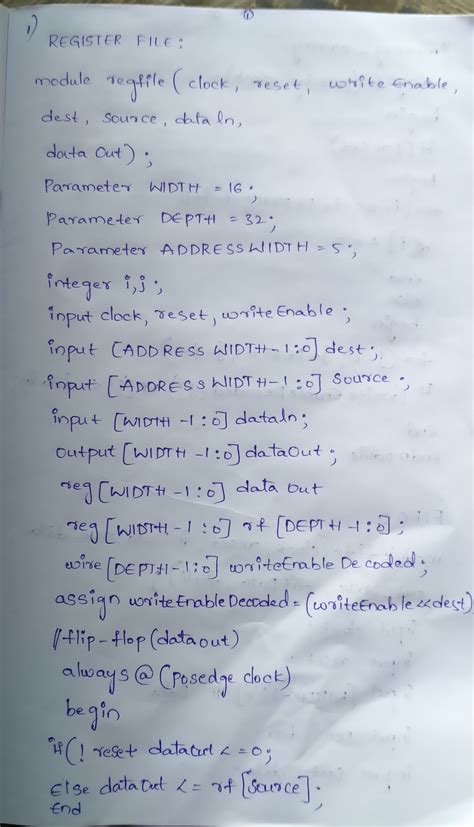 ①
1) REGISTER FILE :
module regfile ( clock, reset, write Enable,
dest, source, data In,
data Out) ;
Parameter WIDTH = 16 ;
Parameter DEPTH = 32 ;
Parameter ADDRESS WIDTH = 5 ;
integer i,j ;
input clock, reset, write Enable ;
input [ADDRESS WIDTH-1:0] dest ;
input [ADDRESS WIDTH-1:0] Source ;
input [WIDTH -1:0] dataIn ;
output [WIDTH -1:0] dataOut ;
reg [WIDTH -1:0] data Out
reg [WIDTH -1:0] rf [DEPTH -1:0] ;
wire [DEPTH-1:0] writeEnable De coded ;
assign write Enable Decoded = (writeEnable << dest)
// flip-flop (dataout)
always @ (posedge clock)
begin
if ( ! reset dataout <= 0 ;
Else data Out <= rf [Source] ;
End